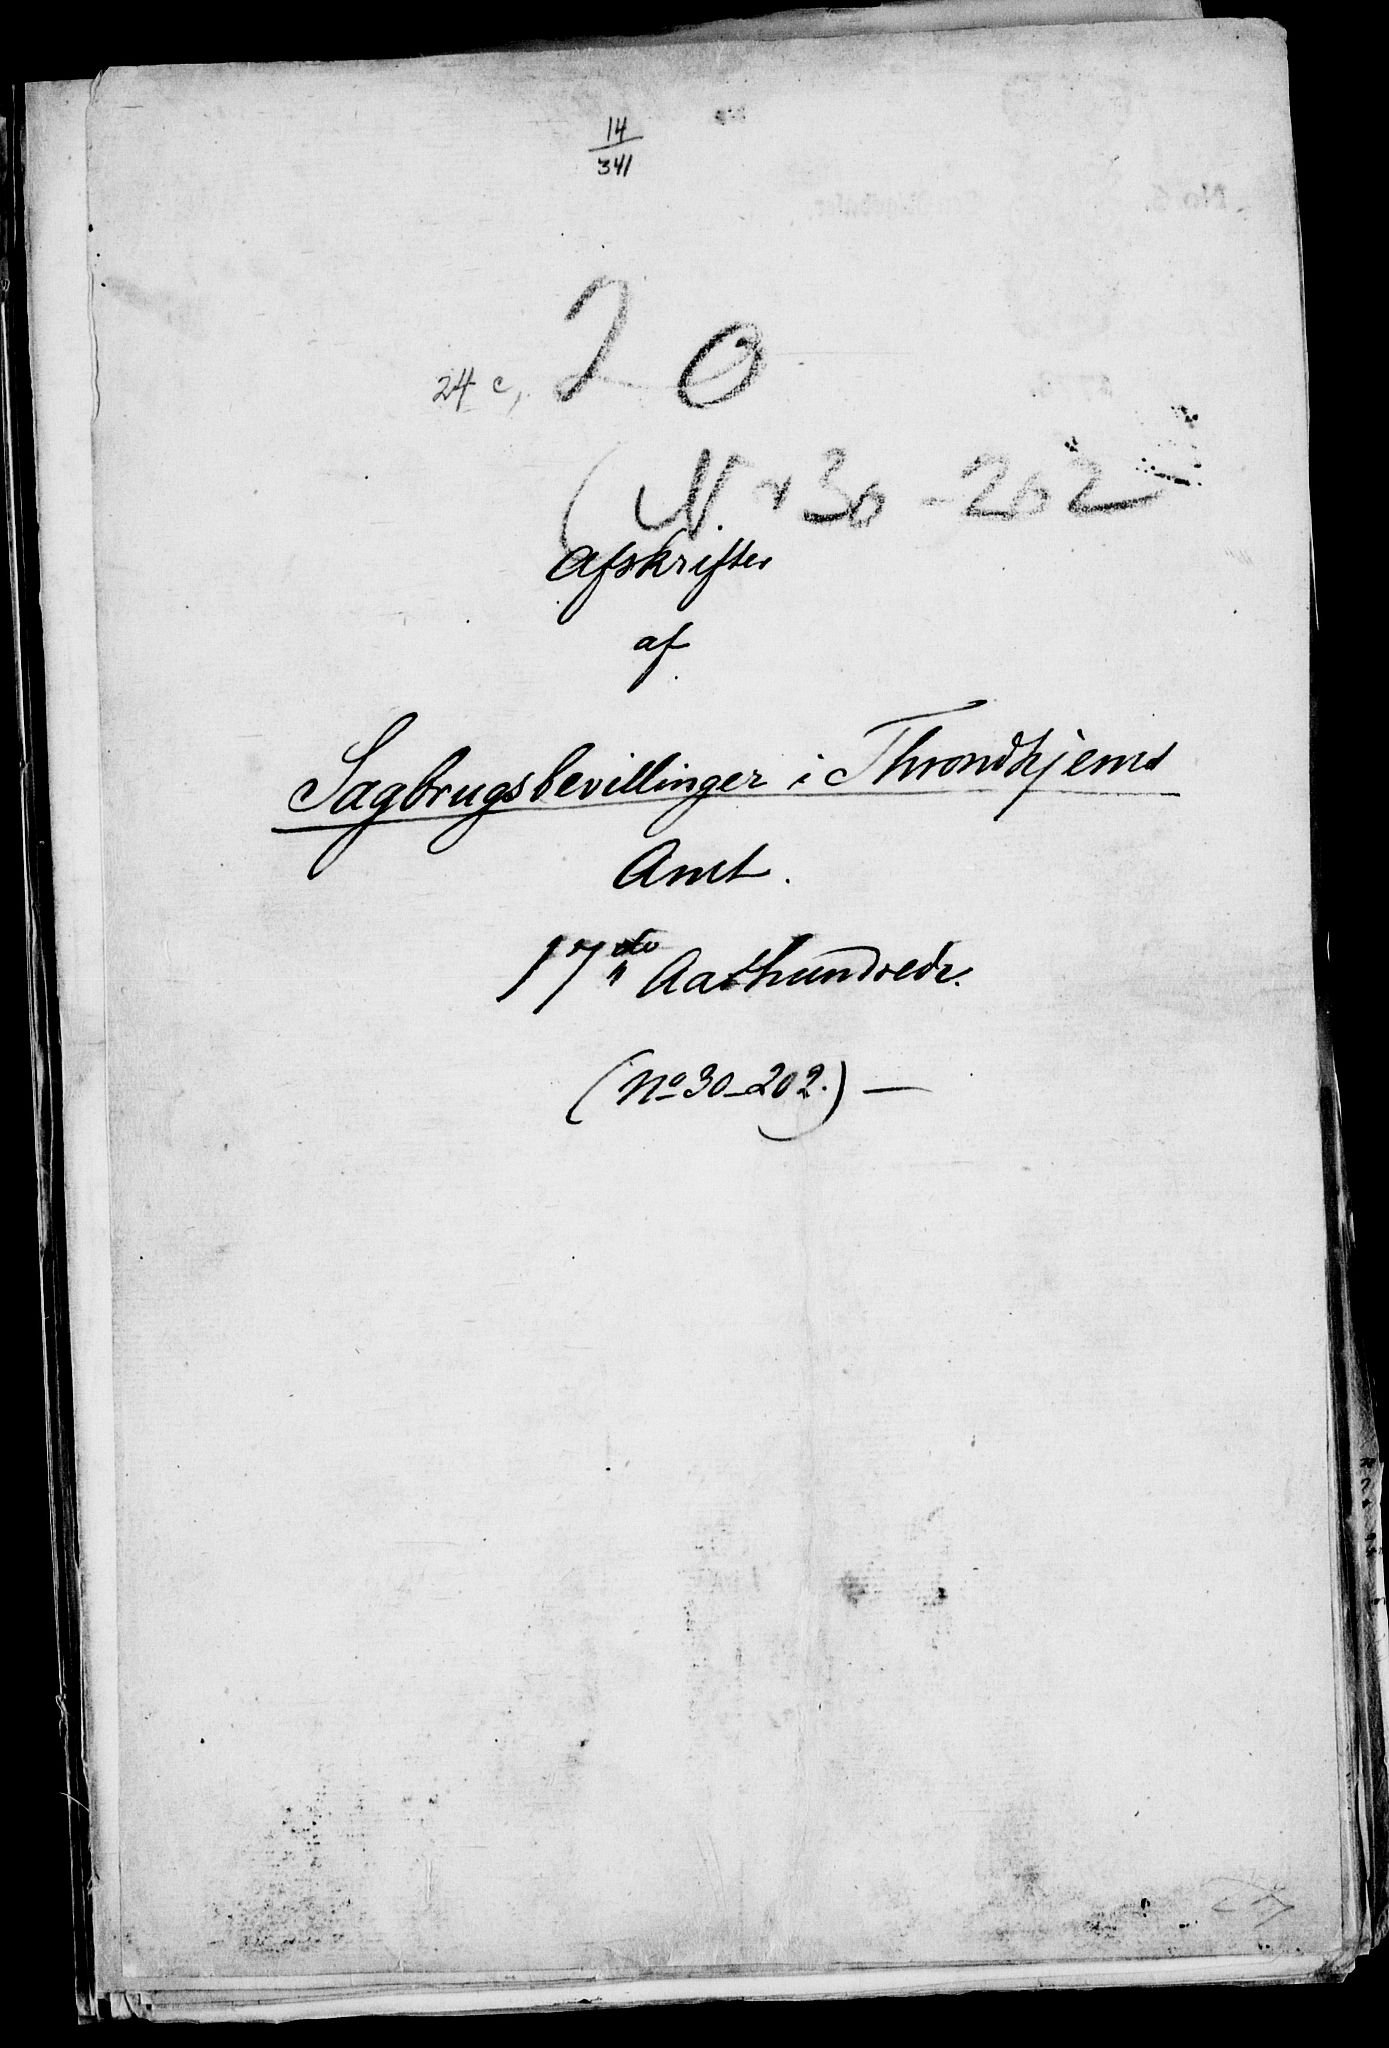 14
341
24 c, 20
(N. 30-202
Afskrifter
af
Sagbrugsbevillinger i Throndhjems
Amt.
17de Aarhundrede.
(No 30-202.) —